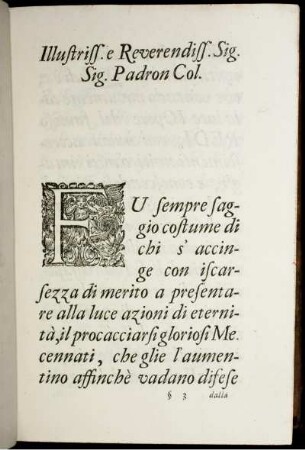 Illuſtriſſ. e Reverendiſſ. Sig.
Sig. Padron Col.
FU ſempre ſag-
gio coſtume di
chi s' accin-
ge con iſcar-
ſezza di merito a preſenta-
re alla luce azioni di eterni-
tà, il procacciarſi glorioſi Me-
cennati, che glie l'aumen-
tino affinchè vadano difeſe
§ 3 dalla